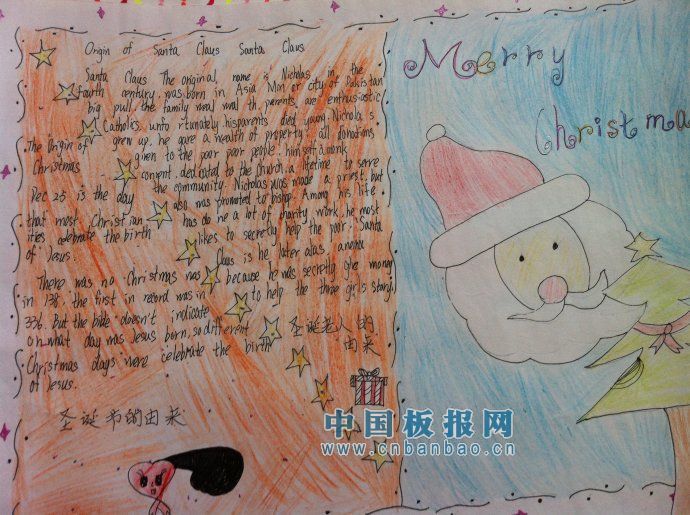 Origin of Santa Claus Santa Claus
Santa Claus The original name is Nicholas, in the
fourth century was born in Asia Mon or city of Pakistan
big pull, the family meal mal th, parents are enthusiastic
Catholics, unfo rtunately hisparents died young. Nichola s
grew up, he gave a wealth of property, all donations
given to the poor poor people, himself a monk
convent, dedicated to the church a lifetime to serve
the community. Nicholas was made a priest, but
also was promoted to bishop. Among his life
has do ne a lot of charity work, he most
likes to secretly help the poor, Santa
Claus is he later alas,
because he was secretly give money
to help the three girls story
圣诞老人的
由来
The Origin of
Christmas
Dec 25 is the day
that most Christian
ities celebrate the birth
of Jesus.
There was no Christmas was
in 138, the first in record was in
336. But the bible doesn't indicate
on what day was Jesus born, so different
Christmas days were celebrate the birth
of Jesus.
圣诞节的由来
Merry
Christma
中国板报网
www.cnbanbao.cn